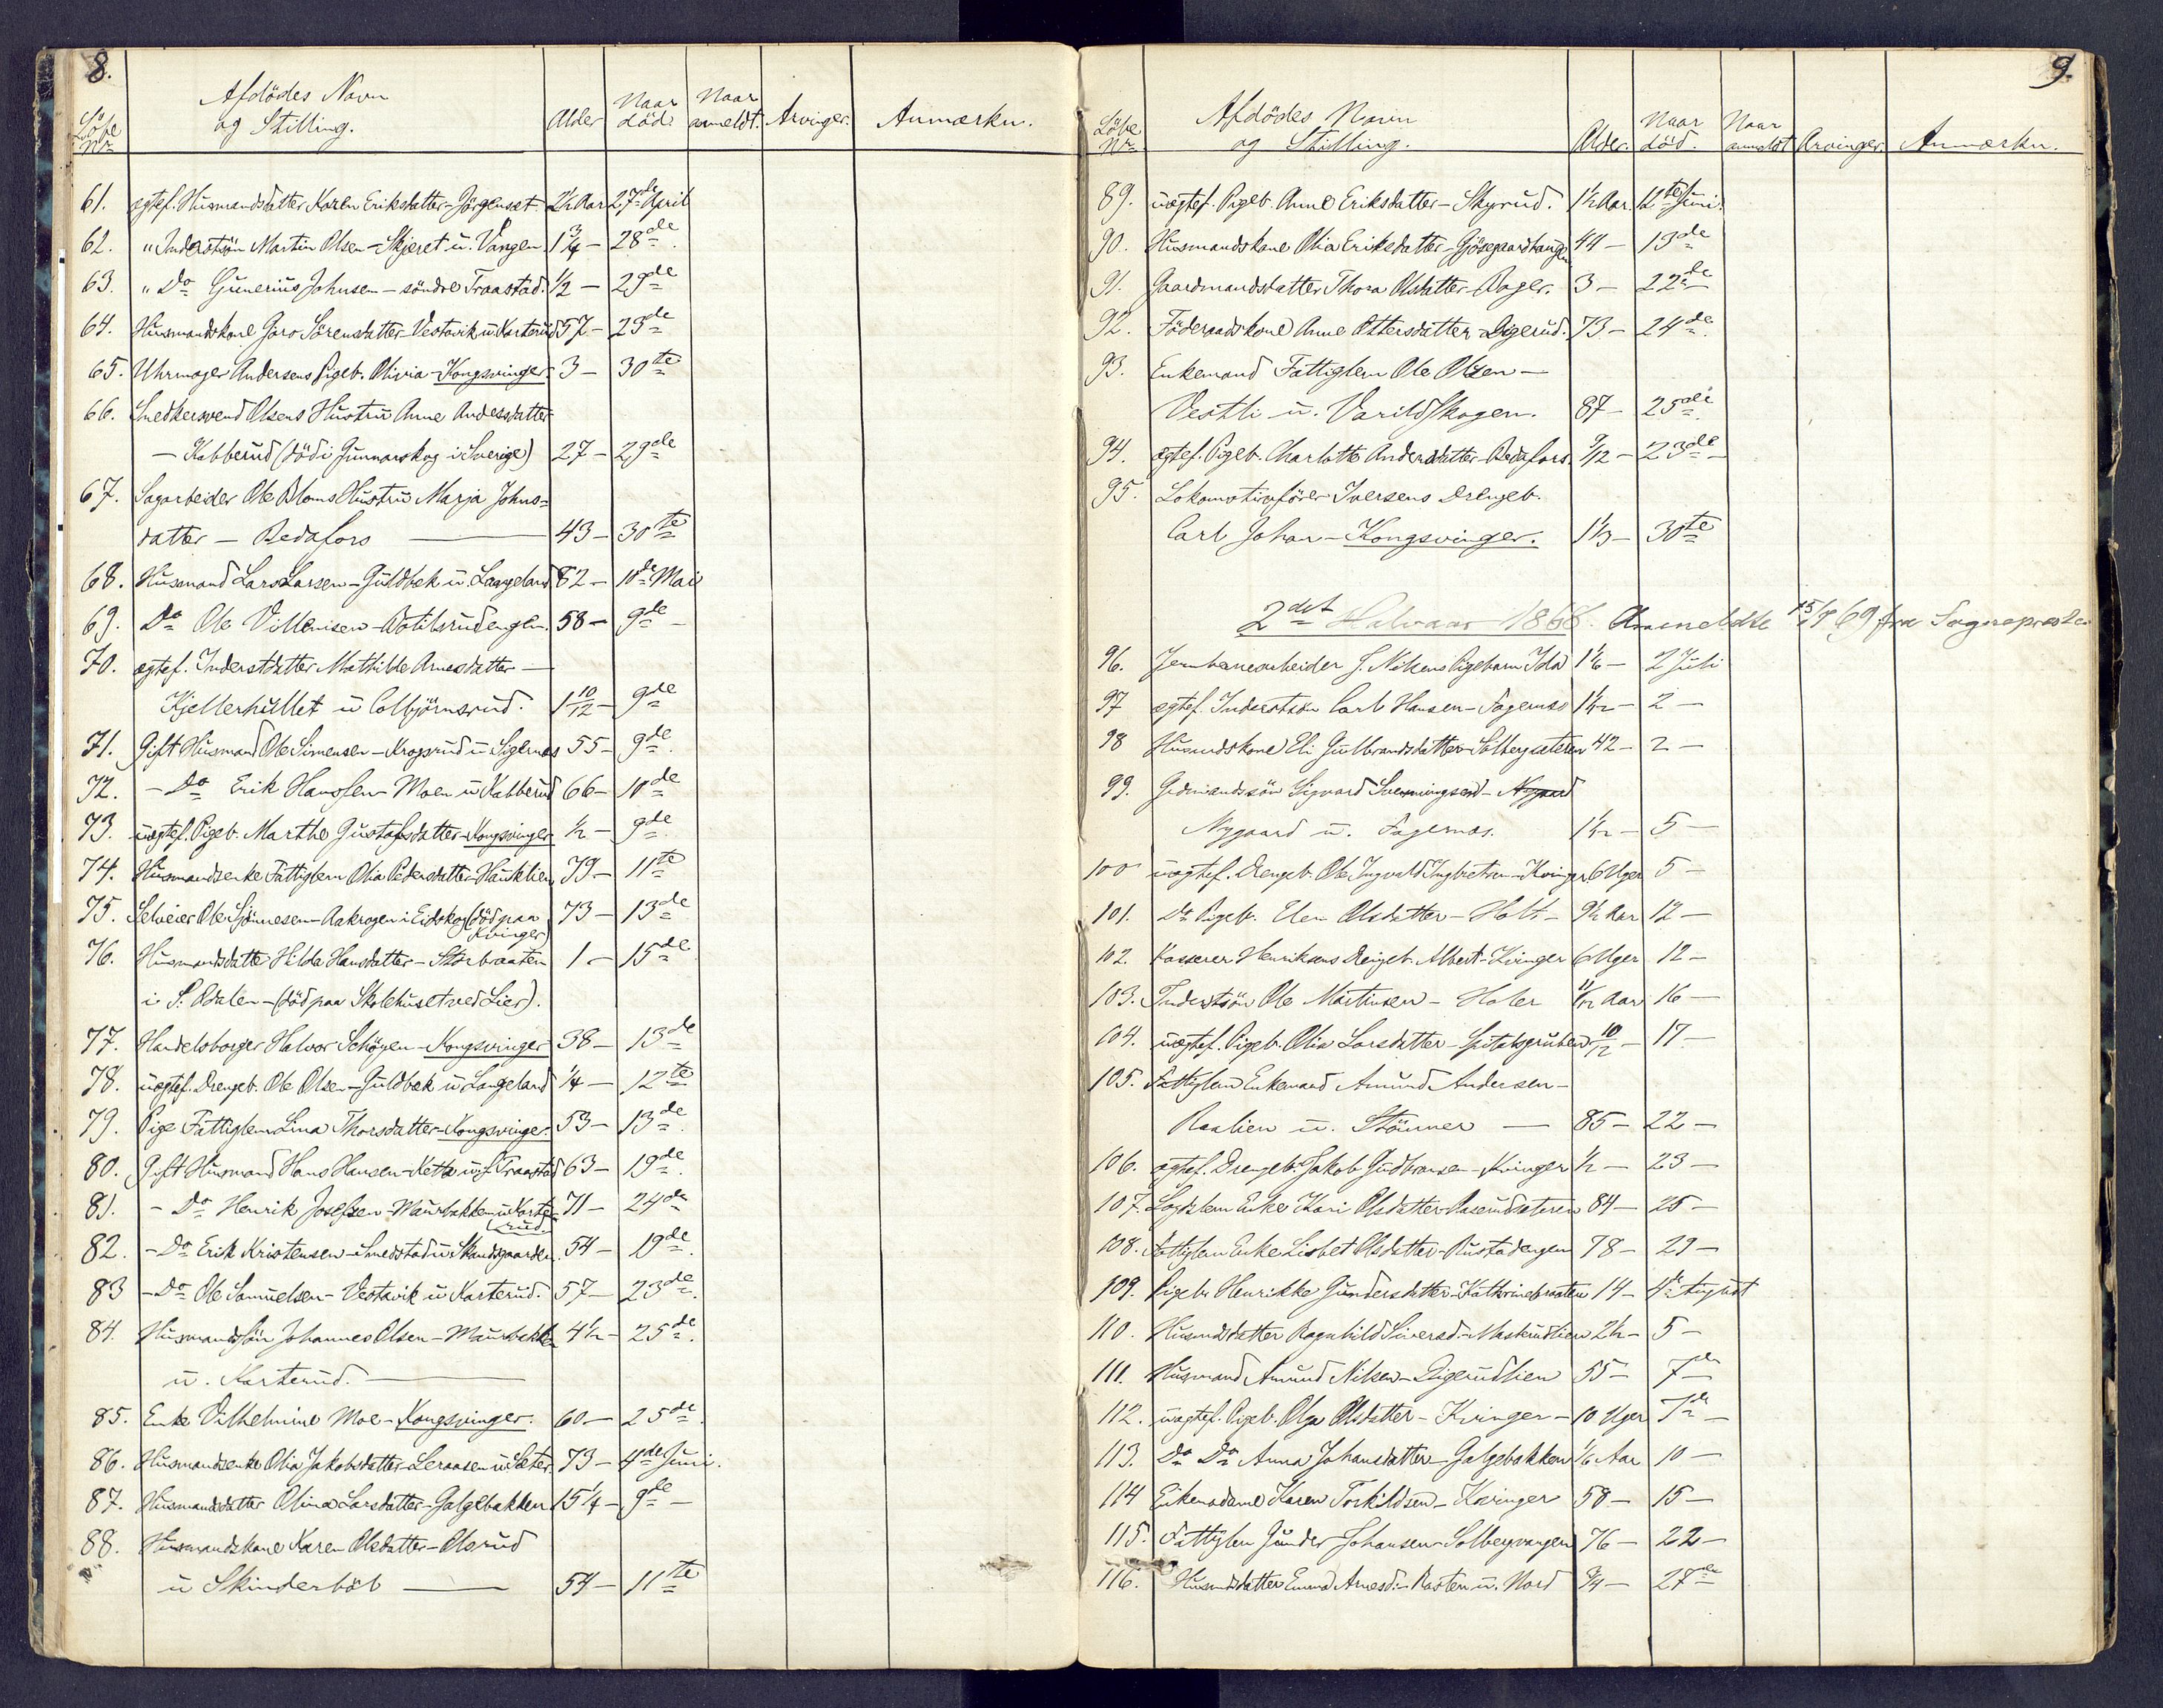 8.
Löbe Nr. Afdödes Navn og Stilling. Alder Naar död. Naar anmeldt. Arvinger. Anmærkn.
61. ægtef. Husmandsdatter Karen Eriksdatter - Jörgenset 2½ Aar 27de April
62. " Inderstsön Martin Olsen - Skjeret u. Vangen 1¾ - 28de
63. " Do Gunerius Johnsen - söndre Traastad. ½ - 29de
64. Husmandskone Goro Sörensdatter Vestavik u Karterud 57 - 23de
65. Uhrmager Andersens Pigeb. Olivia - Kongsvinger. 3 - 30te
66. Snedkersvend Olsens Hustru Anne Andersdatter
- Kabberud (död i Gunnarskog i Sverige) 27 - 29de
67. Sagarbeider Ole Bloms Hustru Marja Johns=
datter - Bedafors 43 - 30te
68. Husmand Lars Larsen - Guldbek u. Langeland 82 - 10de Mai
69. Do Ole Villumsen - Botilsrudengen. 58 - 9de -
70. ægtef. Inderstdatter Mathilde Arnesdatter -
Kjellerhullet u Colbjörnsrud. 1 10/12 - 9de
71. Gift Husmand Ole Simensen - Krogsrud u Sigernæs 55 - 9de
72. - Do Erik Hansen - Moen u Kabberud 66 - 10de
73. uægtef. Pigeb. Marthe Gustafsdatter - Kongsvinger ½ - 9de
74. Husmandsenke Fattiglem Olia Pedersdatter - Hauklien 79 - 11te
75. Selveier Ole Sjönnesen - Aakrogen i Eidskog (död paa Kvinger) 73 - 13de
76. Husmandsdatter Hilda Hansdatter - Storbraaten 1 - 15de
i S. Odalen - (död paa Skolehuset ved Lier).
77. Handelsborger Halvor Schöyen - Kongsvinger 38 - 13de
78. uægtef. Drengeb. Ole Olsen - Guldbek u Langeland ¼ - 12te
79. Pige Fattiglem Lina Thorsdatter - Kongsvinger. 53 - 13de
80. Gift Husmand Hans Hansen - u. Traastad 63 - 19de
81. - Do Henrik Josefsen - Maurbakken u Karterud 71 - 24de
82. - Do Erik Kristensen - Smedstad u Skandsgaarden 54 - 19de
83 - Do Ole Samuelsen - Vestavik u Karterud. 57 - 23de
84. Husmandssön Johannes Olsen - Maurbakken 4½ - 25de
u. Karterud.
85. Enke Vilhelmine Moe - Kongsvinger. 60 - 25de
86. Husmandsenke Olia Jakobsdatter - Leraasen u Sæter. 73 - 4de Juni.
87. Husmandsdatter Olina Larsdatter - Galgebakken 15¼ - 9de -
88. Husmandskone Karen Olsdatter - Olsrud
u Skinderböl 54 - 11te
9.
Löbe Nr. Afdödes Navn og Stilling. Alder. Naar död. Naar anmeldt Arvinger. Anmærkn.
89. uægtef. Pigeb. Anne Eriksdatter - Skyrud. 1½ Aar. 12te Juni.
90. Husmandskone Olia Eriksdatter - Gjösegaardhaugen 44 - 13de
91. Gaardmandsdatter Thora Olsdatter - Roger. 3 - 22de
92. Föderaadskone Anne Ottersdatter - Digerud. 73 - 24de
93. Enkemand Fattiglem Ole Olsen -
Vestli u. Varildskogen. 87 - 25de
94. ægtef. Pigeb. Charlotte Andersdatter - Bedafors. 9/12 - 23de -
95. Lokomotivförer Iversens Drengeb.
Carl Johan - Kongsvinger. 1⅓ - 30te
2det Halvaar 1868. Anmeldte 15/1 69 fra Sognepresten
96. Jernbanearbeider J. Nilsens Pigebarn Ida 1⅙ - 2 Juli
97 ægtef. Inderstsön Carl Hansen - Sagernes 1½ - 2 -
98 Husmdskone Eli Gulbrandsdatter Solbergsæteren 42 - 2 -
99. Gdmandssön Sigvard Svenningsen - Nygaard
Nygaard u. Fagernæs. 1½ - 5 -
100 uægtef. Drengeb. Ole Ingvald Ingbretsen - Kvinger 6 Uger 5 -
101. Do Pigeb. Elen Olsdatter - Holt - 9½ Aar 12 -
102. Kasserer Henriksens Drengeb. Albert - Kvinger 6 Uger 12 -
103. Inderstsön Ole Martinsen - Holer 11/12 Aar 16 -
104. uægtef. Pigeb. Olia Larsdatter - Spitalsgruben 10/12 - 17 -
105. Fattiglem Enkemand Amund Andersen -
Raalien u. Stömner - 85 - 22 -
106. ægtef. Drengeb. Jakob Gudbransen - Kvinger ½ - 23 -
107. Lægdslem Enke Kari Olsdatter - Raserudsæteren 84 - 25 -
108. Fattiglem Enke Lisbet Olsdatter - Rustadengen 78 - 29 -
109. Pigebr Henrikke Gundersdatter - Kathrinebraaten 14 - 4de August
110. Husmdsdatter Ragnhild Siversd. - Maskrudlien 2½ - 5 -
111. Husmand Amund Nilsen - Digerudlien 55 - 7de
112. uægtef. Pigeb. Olga Olsdatter - Kvinger - 10 Uger 7de -
113. Do Do Anna Johansdatter - Galgebakken ⅙ Aar 10 -
114 Enkemadame Karen Torkildsen - Kvinger 58 - 15 -
115. Fattiglem Gunder Johansen - Solbergvangen 76 - 22 -
116. Husmdsdatter Emma Arnesd. - Raaten u. Nord ¾ - 27de